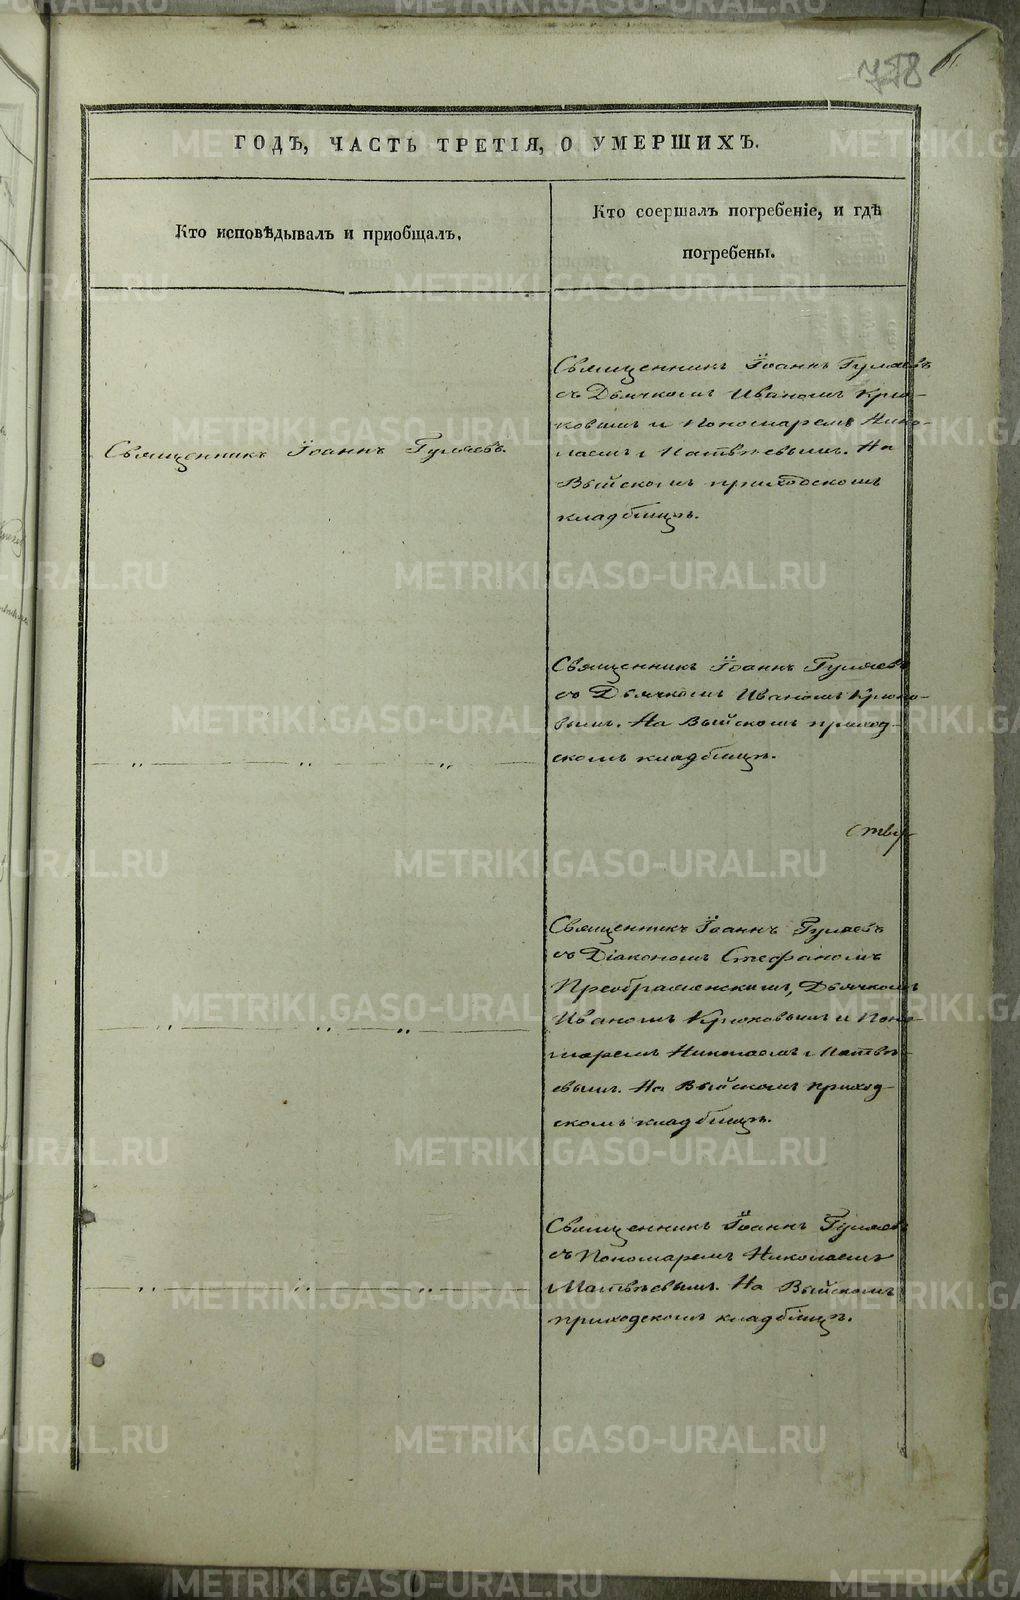 758
ГОДѢ, ЧАСТЬ ТРЕТІЯ, О УМЕРШИХЪ.
Кто исповѣдывалъ и приобщалъ.
Кто соершалъ погребеніе, и гдѣ
погребены.
Священникъ Іоаннъ Гуляевъ.
Священникъ Іоаннъ Гуляевъ
съ Дьячкомъ Иваномъ Крю-
ковымъ и Пономаремъ Нико-
лаемъ Матвѣевымъ. На
Выйскомъ приходскомъ
кладбищѣ.
Священникъ Іоаннъ Гуляевъ
съ Дьячкомъ Иваномъ Крюко-
вымъ. На Выйскомъ приход-
скомъ кладбищѣ.
„ „ „
Священникъ Іоаннъ Гуляевъ
съ Діакономъ Стефаномъ
Преображенскимъ, Дьячкомъ
Иваномъ Крюковымъ и Поно-
маремъ Николаемъ Матвѣ-
евымъ. На Выйскомъ приход-
скомъ кладбищѣ.
„ „ „
Священникъ Іоаннъ Гуляевъ
съ Пономаремъ Николаемъ
Матвѣевымъ. На Выйскомъ
приходскомъ кладбищѣ.
„ „ „
METRIKI.GASO-URAL.RU